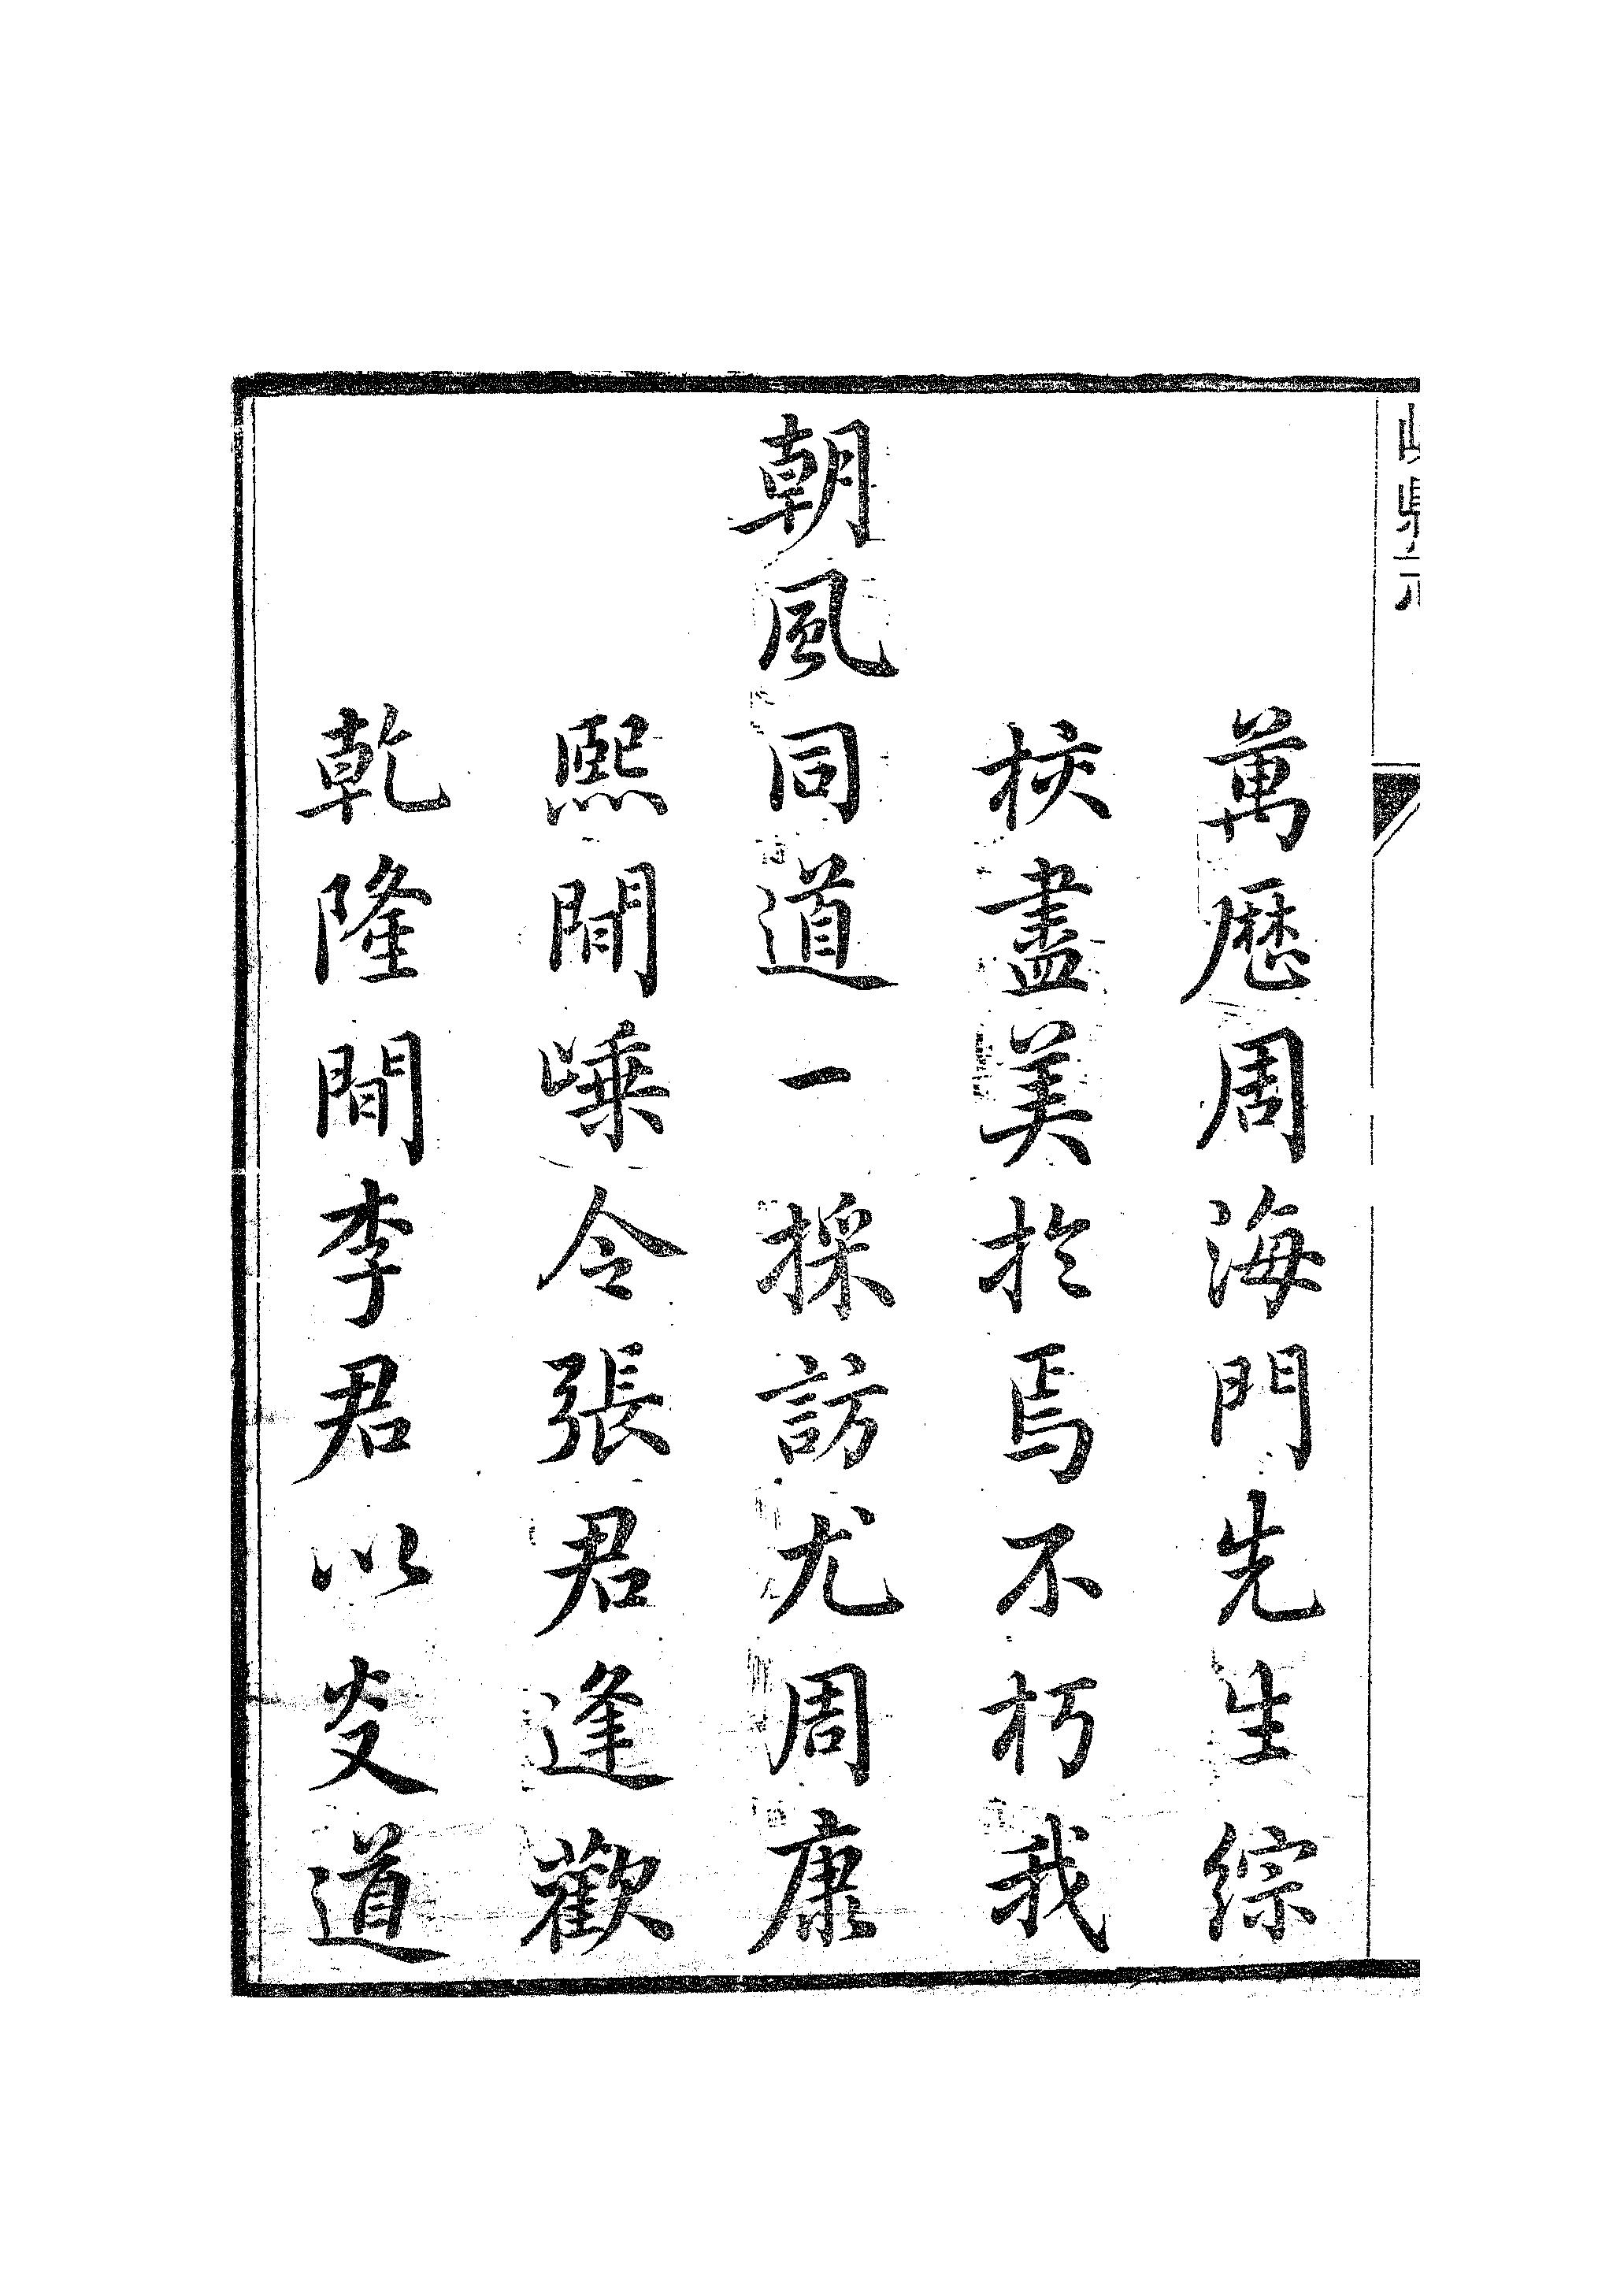 萬厯周海門先生綜
核盡美扵焉不朽我
朝風同道一採訪尤周康
熙間嵊令張君逢歡
乾隆間李君以炎道